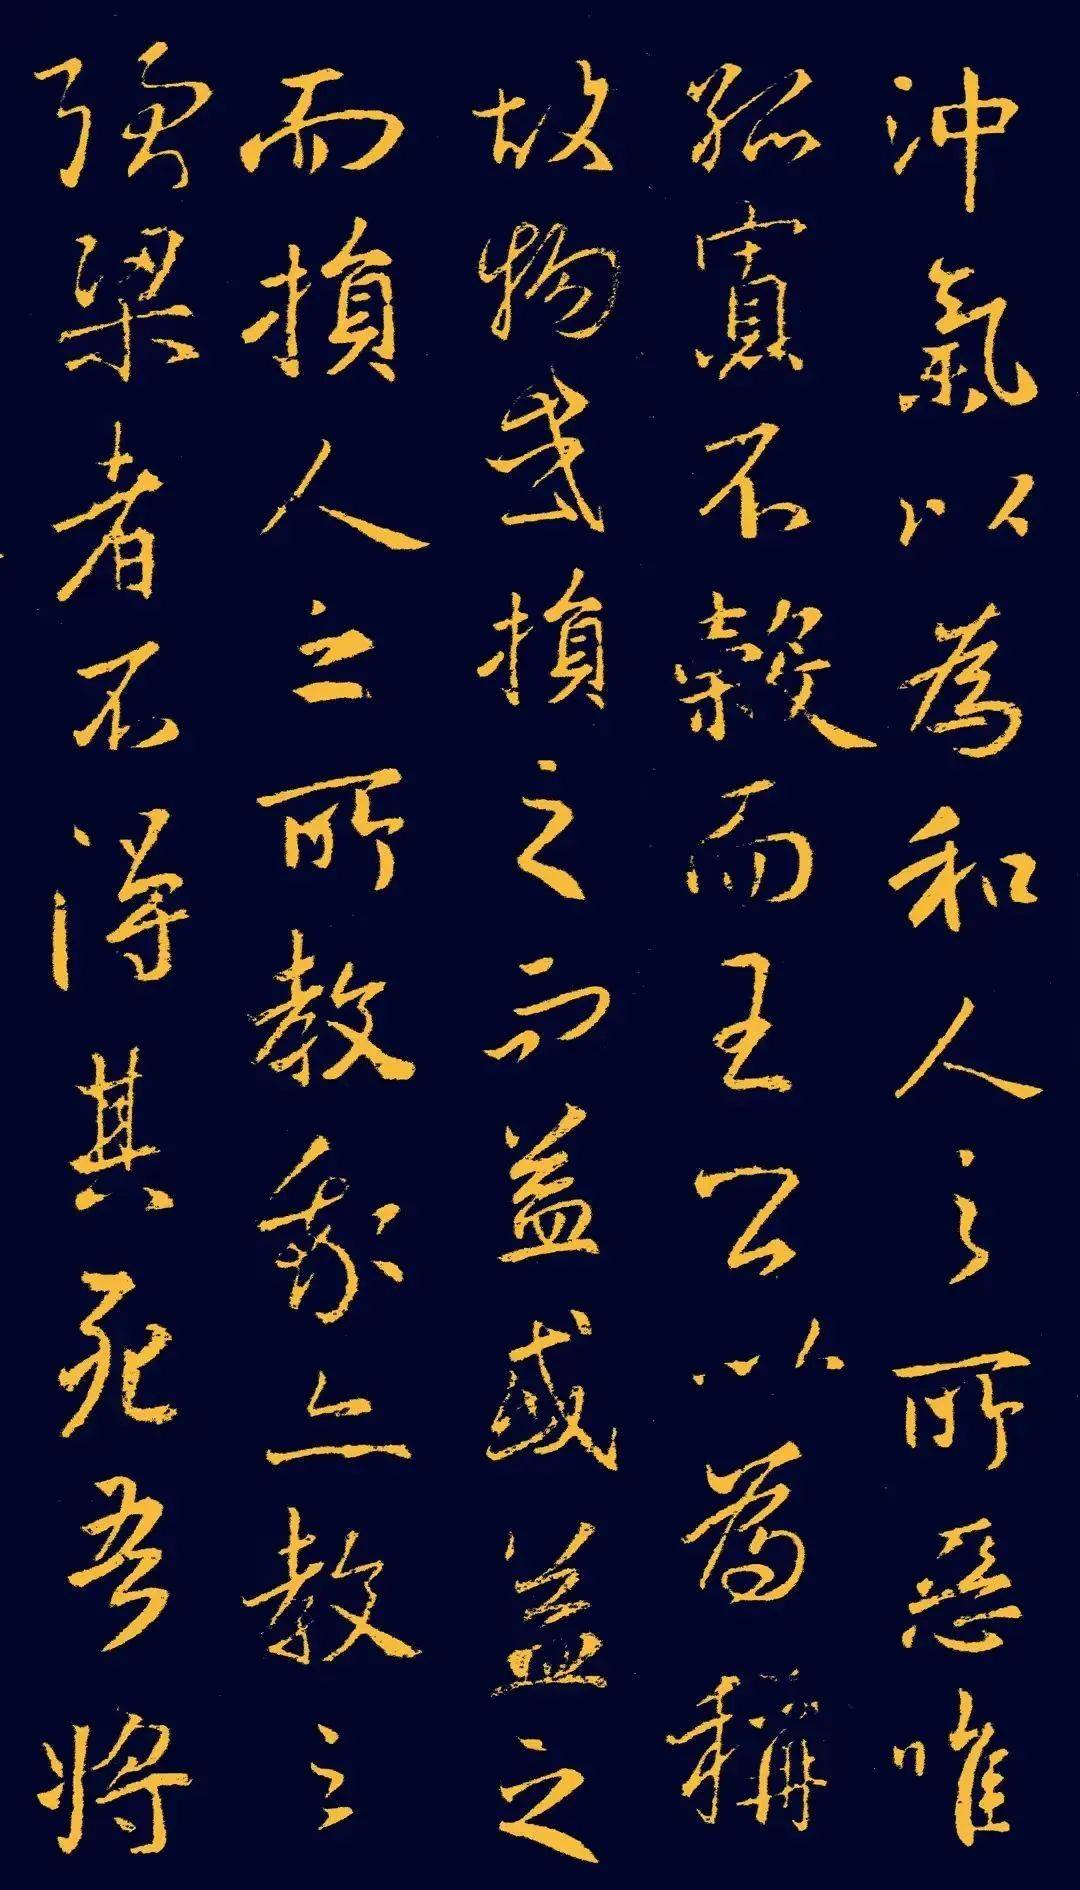 沖氣以為和人之所惡唯
孤寡不穀而王公以為稱
故物或損之而益或益之
而損人之所教我亦教之
強梁者不得其死吾將